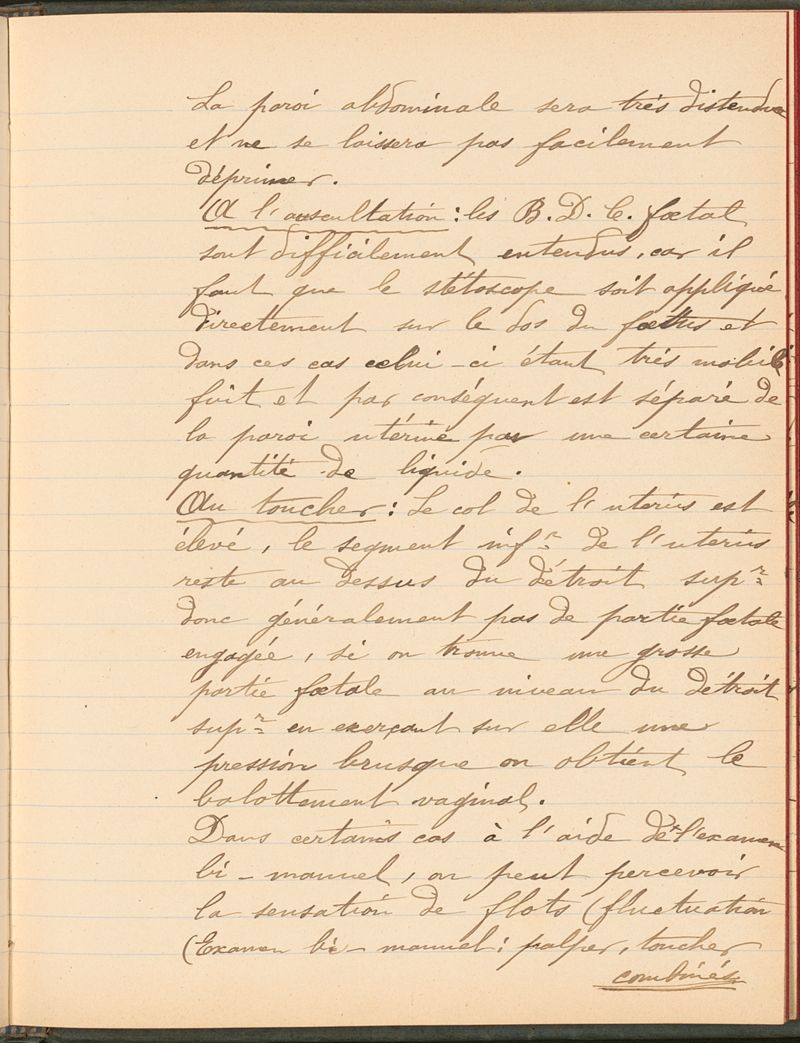 La paroi abdominale sera très distendue
et ne se laissera pas facilement
déprimer.
A l'auscultation : les B. D. C. fœtal
sont difficilement entendus, car il
faut que le stétoscope soit appliqué
directement sur le dos du fœtus et
dans ces cas celui-ci étant très mobile
fuit et par conséquent est séparé de
la paroi utérine par une certaine
quantité de liquide.
Au toucher : Le col de l'utérus est
élevé, le segment infr de l'utérus
reste au dessus du détroit supr
donc généralement pas de partie fœtale
engagée, si on trouve une grosse
partie fœtale au niveau du détroit
supr en exerçant sur elle une
pression brusque on obtient le
balottement vaginal.
Dans certains cas à l'aide de l'examen
bi-manuel, on peut percevoir
la sensation de flots (fluctuation
(Examen bi-manuel : palper, toucher
combinés